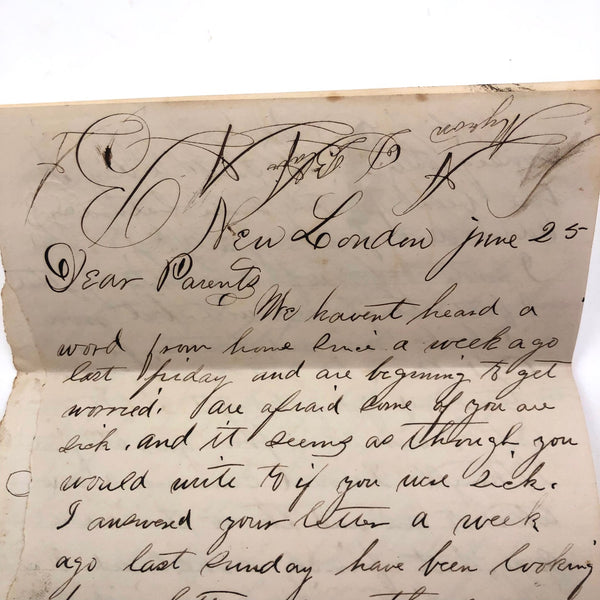 New London june 25
Dear Parents
We havent heard a
word from home since a week ago
last friday and are begining to get
worried. are afraid some of you are
sick. and it seems as though you
would write to if you were sick.
I answered your letter a week
ago last sunday have been looking